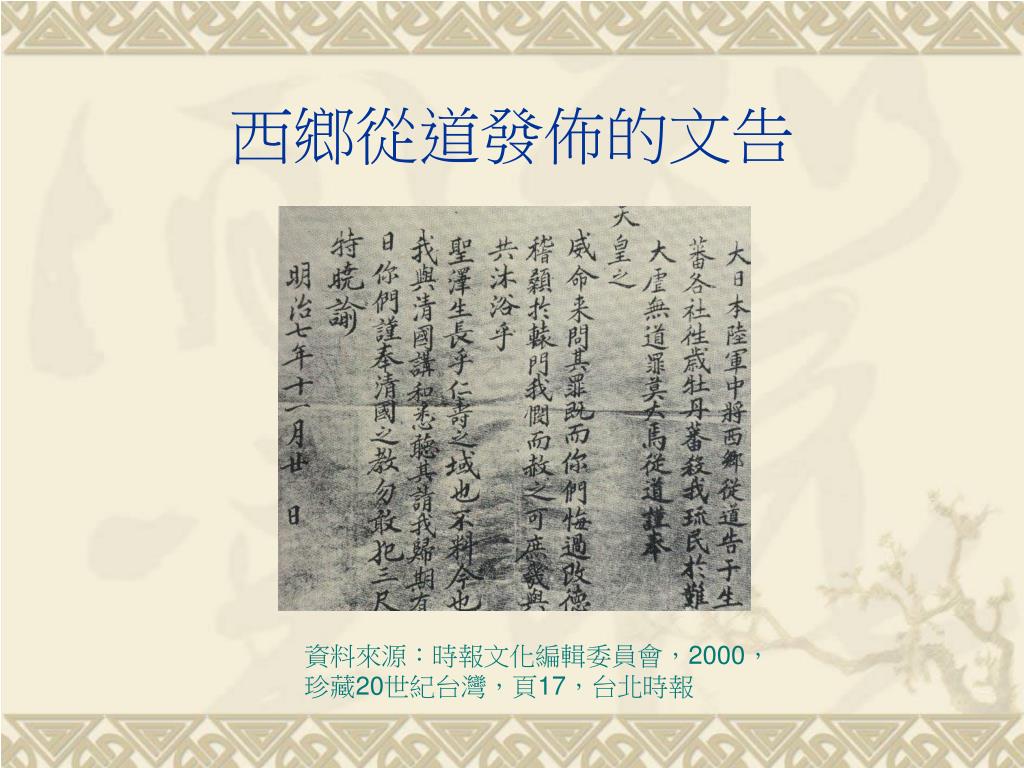 西鄉從道發佈的文告
大日本陸軍中將西鄉從道告于生
蕃各社徃歲牡丹蕃殺我琉民於難
大虐無道罪莫大焉從道謹奉
天皇之
威命来問其罪既而你們悔過改德
稽顙於轅門我憫而赦之可庶幾與
共沐浴乎
聖澤生長乎仁壽之域也不料今也
我與清國講和悉聽其請我歸期有
日你們謹奉清國之教勿敢犯三尺
特曉諭
明治七年十一月廿 日
資料來源：時報文化編輯委員會，2000，
珍藏20世紀台灣，頁17，台北時報